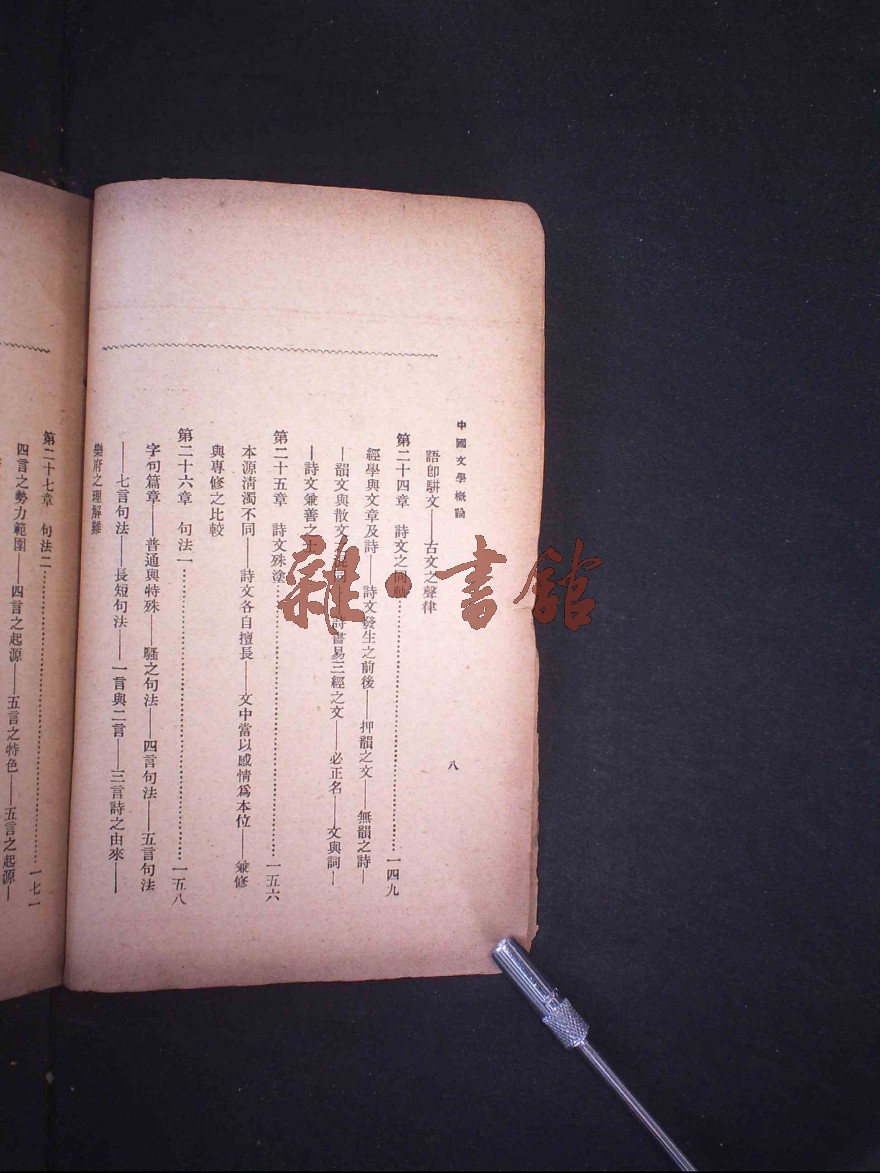 中國文學概論
八
語卽駢文——古文之聲律
第二十四章 詩文之同⋯⋯一四九
經學與文章及詩——詩文發生之前後——押韻之文——無韻之詩—
—韻文與散文——詩書易三經之文——必正名——文與詞—
—詩文兼善之士
第二十五章 詩文殊塗⋯⋯一五六
本源清濁不同——詩文各自擅長——文中當以感情爲本位——兼修
與專修之比較
第二十六章 句法一⋯⋯一五八
字句篇章——普通與特殊——騷之句法——四言句法——五言句法
——七言句法——長短句法——一言與二言——三言詩之由來——
樂府之理解難
第二十七章 句法二⋯⋯一七一
四言之勢力範圍——四言之起源——五言之特色——五言之起源—
雜·書館